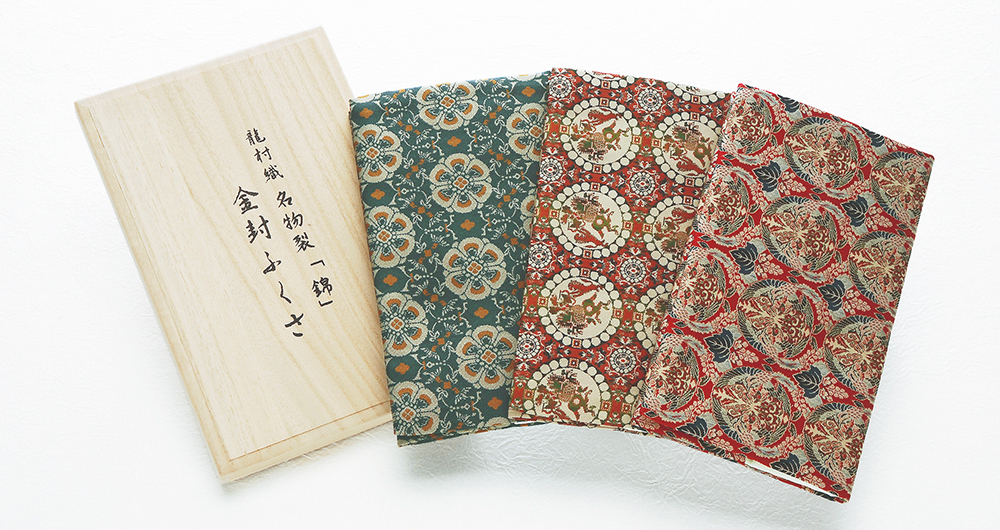 龍村織 名物裂「錦」
金封ふくさ